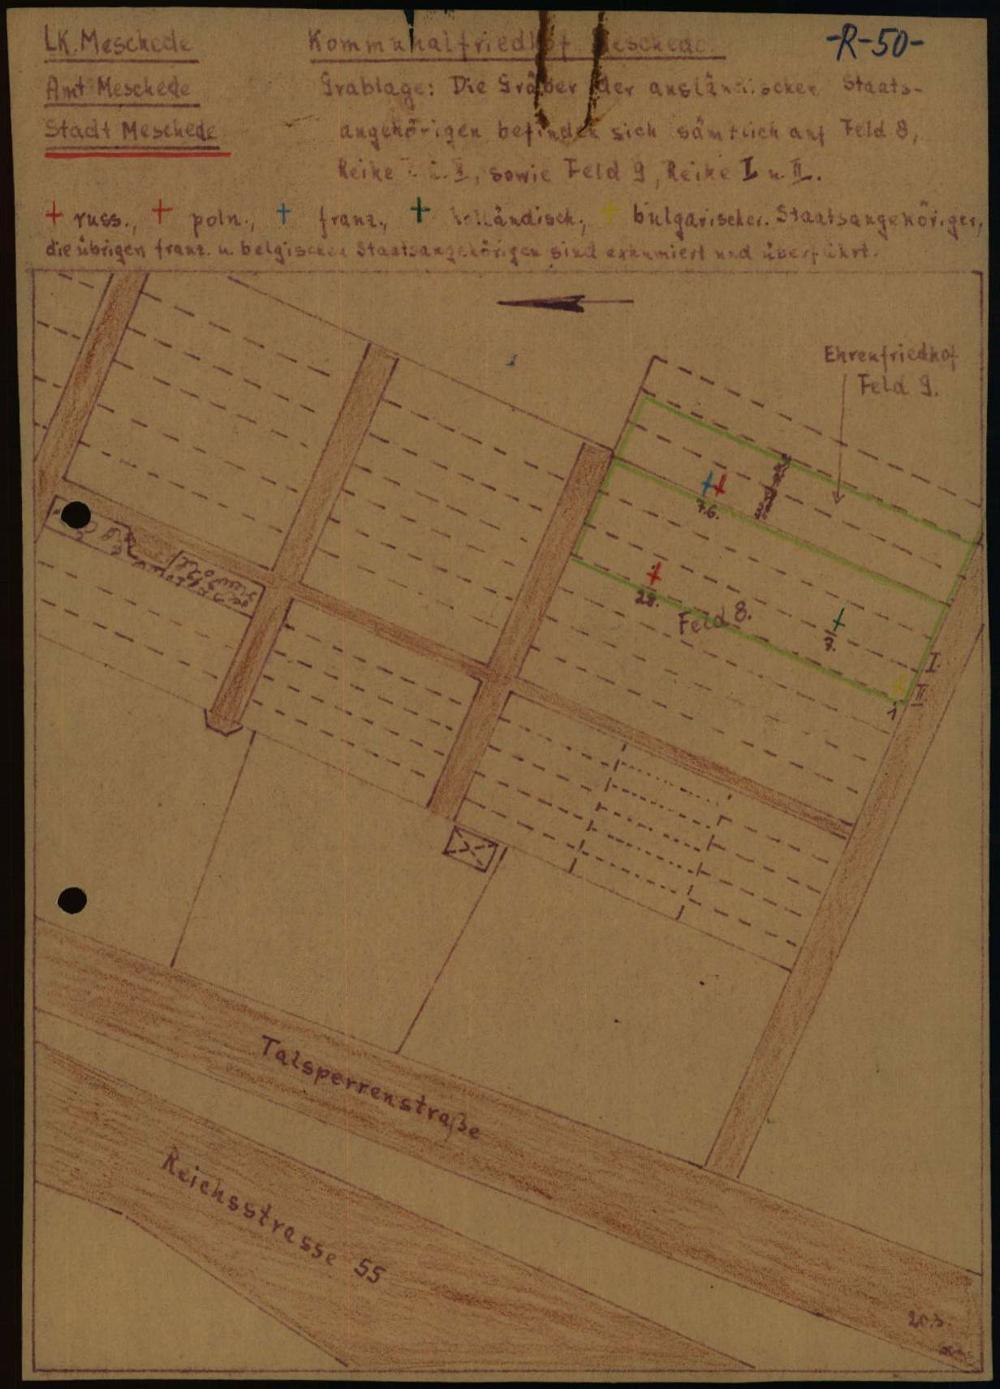 LK. Meschede
Kommunalfriedhof Meschede.
-R-50-
Amt Meschede
Grablage: Die Gräber der ausländischen Staats-
Stadt Meschede
angehörigen befinden sich sämtlich auf Feld 8,
Reihe I u. II, sowie Feld 9, Reihe I u. II.
+ russ., + poln., + franz., + holländisch., + bulgarischer. Staatsangehöriger,
die übrigen franz. u. belgischen Staatsangehörigen sind exhumiert und überführt.
Ehrenfriedhof
Feld 9.
76.
28.
Feld 8.
7.
I
II
1
Talsperrenstraße
Reichsstrasse 55
20.3.